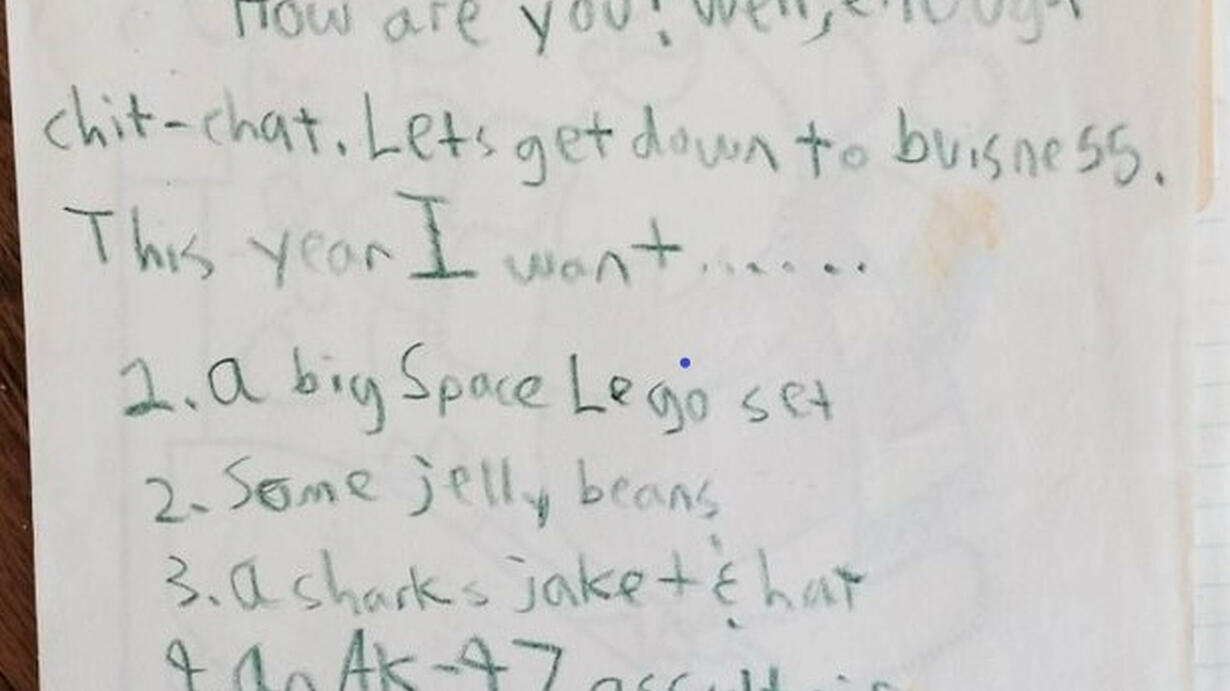 How are you? Well, enough
chit-chat. Lets get down to buisness.
This year I want......
1. a big Space Lego set
2. Some jelly beans
3. a sharks jaket & hat
4. An AK-47 assult